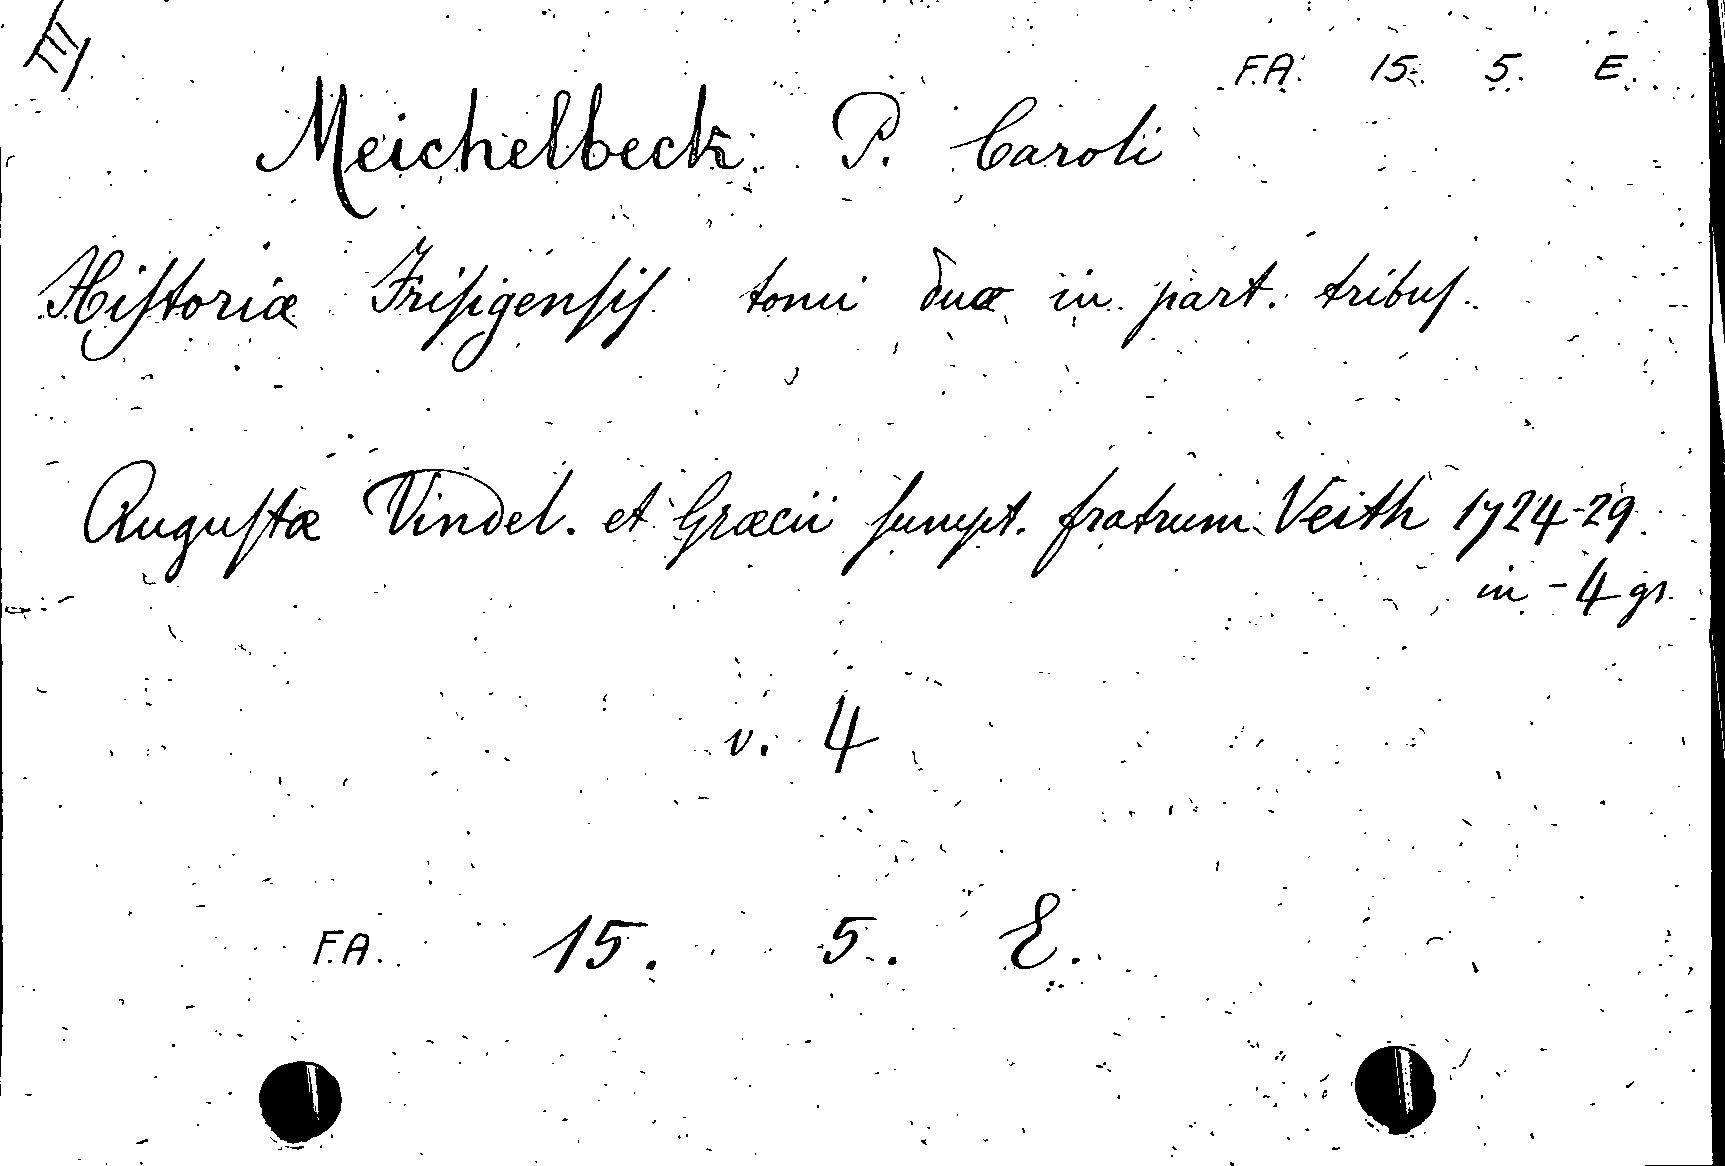 III
F.A. 15. 5. E.
Meichelbeck P. Caroli
Hiſtoriæ Friſigenſiſ tomi duæ in part. tribuſ.
Auguſtæ Vindel. et Græcii ſumpt. fratrum Veith 1724-29
in-4 gr.
v. 4
F.A. 15. 5. E.